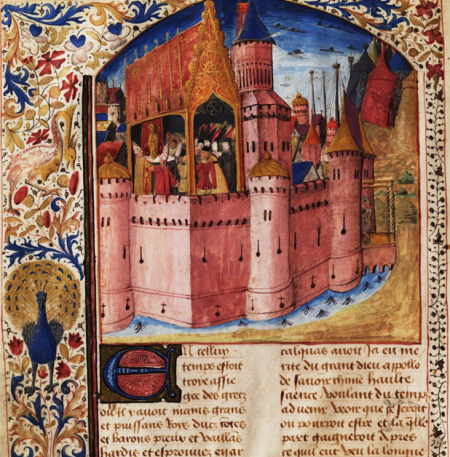 En celluy
temps estoit
troye assie
gee des grecz
ou il y auoit mains grans
et puissans Roys duc, cotes
et barons preux et vaillas
hardis et esprouuez en ar
calquas auoit Ja eu me
rite du grant dieu apollo
de sauoir haulte
sience voulant du temp
aduenir Veoir que se seroit
ou pourroit estre et la qlle
part gaigneroit Apres
ce quil eut veu la longue